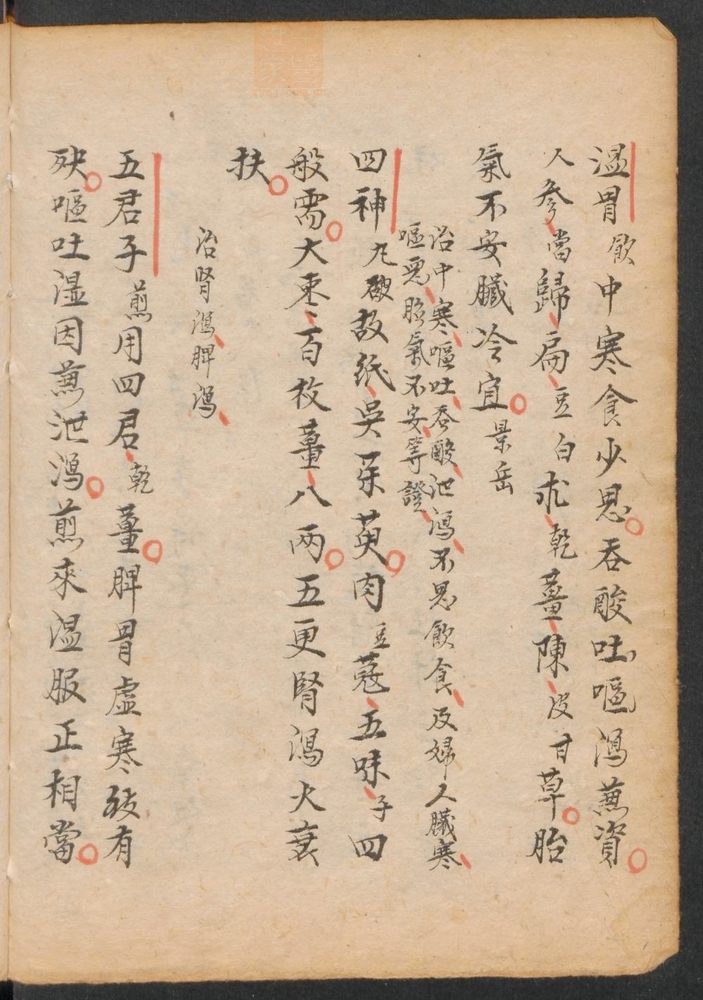 溫胃飲中寒食少思吞酸吐嘔瀉兼資
人參當歸扁豆白朮乾薑陳皮甘草胎
氣不安臟冷宜景岳
治中寒嘔吐吞酸泄瀉不思飲食及婦人臟寒
嘔惡胎氣不安等證
四神丸破故紙吳茱萸肉豆蔻五味子四
般需大棗百枚薑八兩五更腎瀉火衰
扶
治腎瀉脾瀉
五君子煎用四君乾薑脾胃虛寒故有
殃嘔吐濕因兼泄瀉煎來溫服正相當